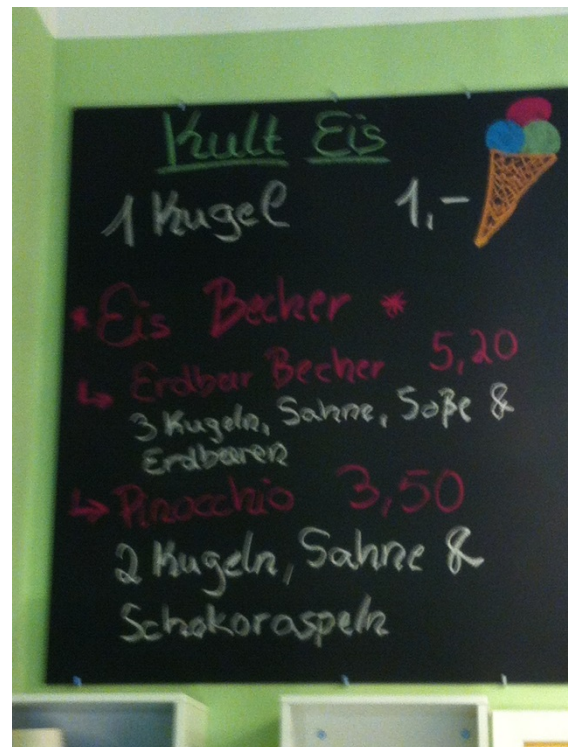 Kult Eis
1 Kugel 1,-
* Eis Becher *
↳ Erdbär Becher 5,20
3 Kugeln, Sahne, Soße &
Erdbeeren
↳ Pinocchio 3,50
2 Kugeln, Sahne &
Schokoraspeln